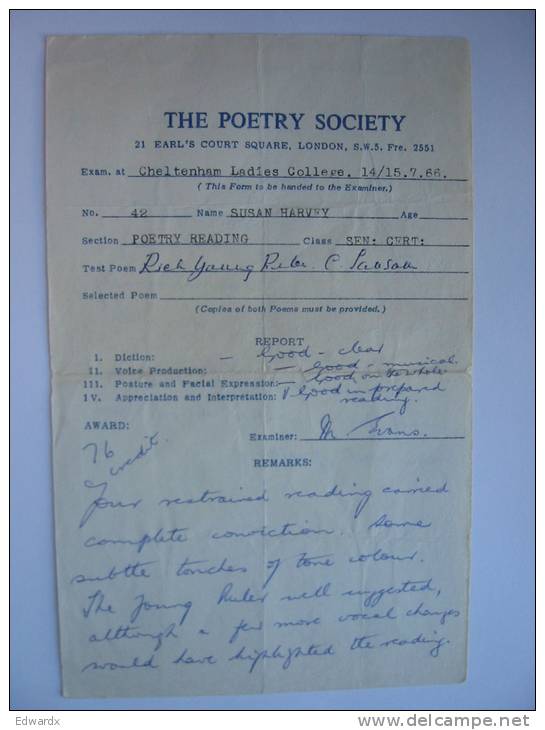 THE POETRY SOCIETY
21 EARL'S COURT SQUARE, LONDON, S.W.5. Fre. 2551
Exam. at Cheltenham Ladies College. 14/15.7.66.
(This Form to be handed to the Examiner.)
No. 42 Name SUSAN HARVEY Age
Section POETRY READING Class SEN: CERT:
Test Poem Rich Young Ruler. C. Sansom
Selected Poem
(Copies of both Poems must be provided.)
REPORT
I. Diction: - Good - clear
II. Voice Production: - Good - musical.
III. Posture and Facial Expression: - Good on the whole
IV. Appreciation and Interpretation: Good in prepared
reading.
AWARD:
76
credit.
Examiner: M Evans.
REMARKS:
Your restrained reading carried
complete conviction. Some
subtle touches of tone colour.
The Young Ruler well suggested,
although a few more vocal changes
would have highlighted the reading.
Edwardx
www.delcampe.net